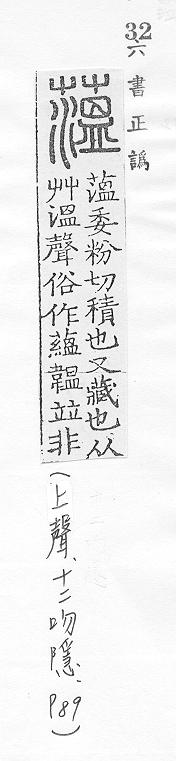 32
六書正譌
薀
薀委粉切積也又藏也从
艸溫聲俗作蘊韞竝非
(上聲、十二吻隱、P89)